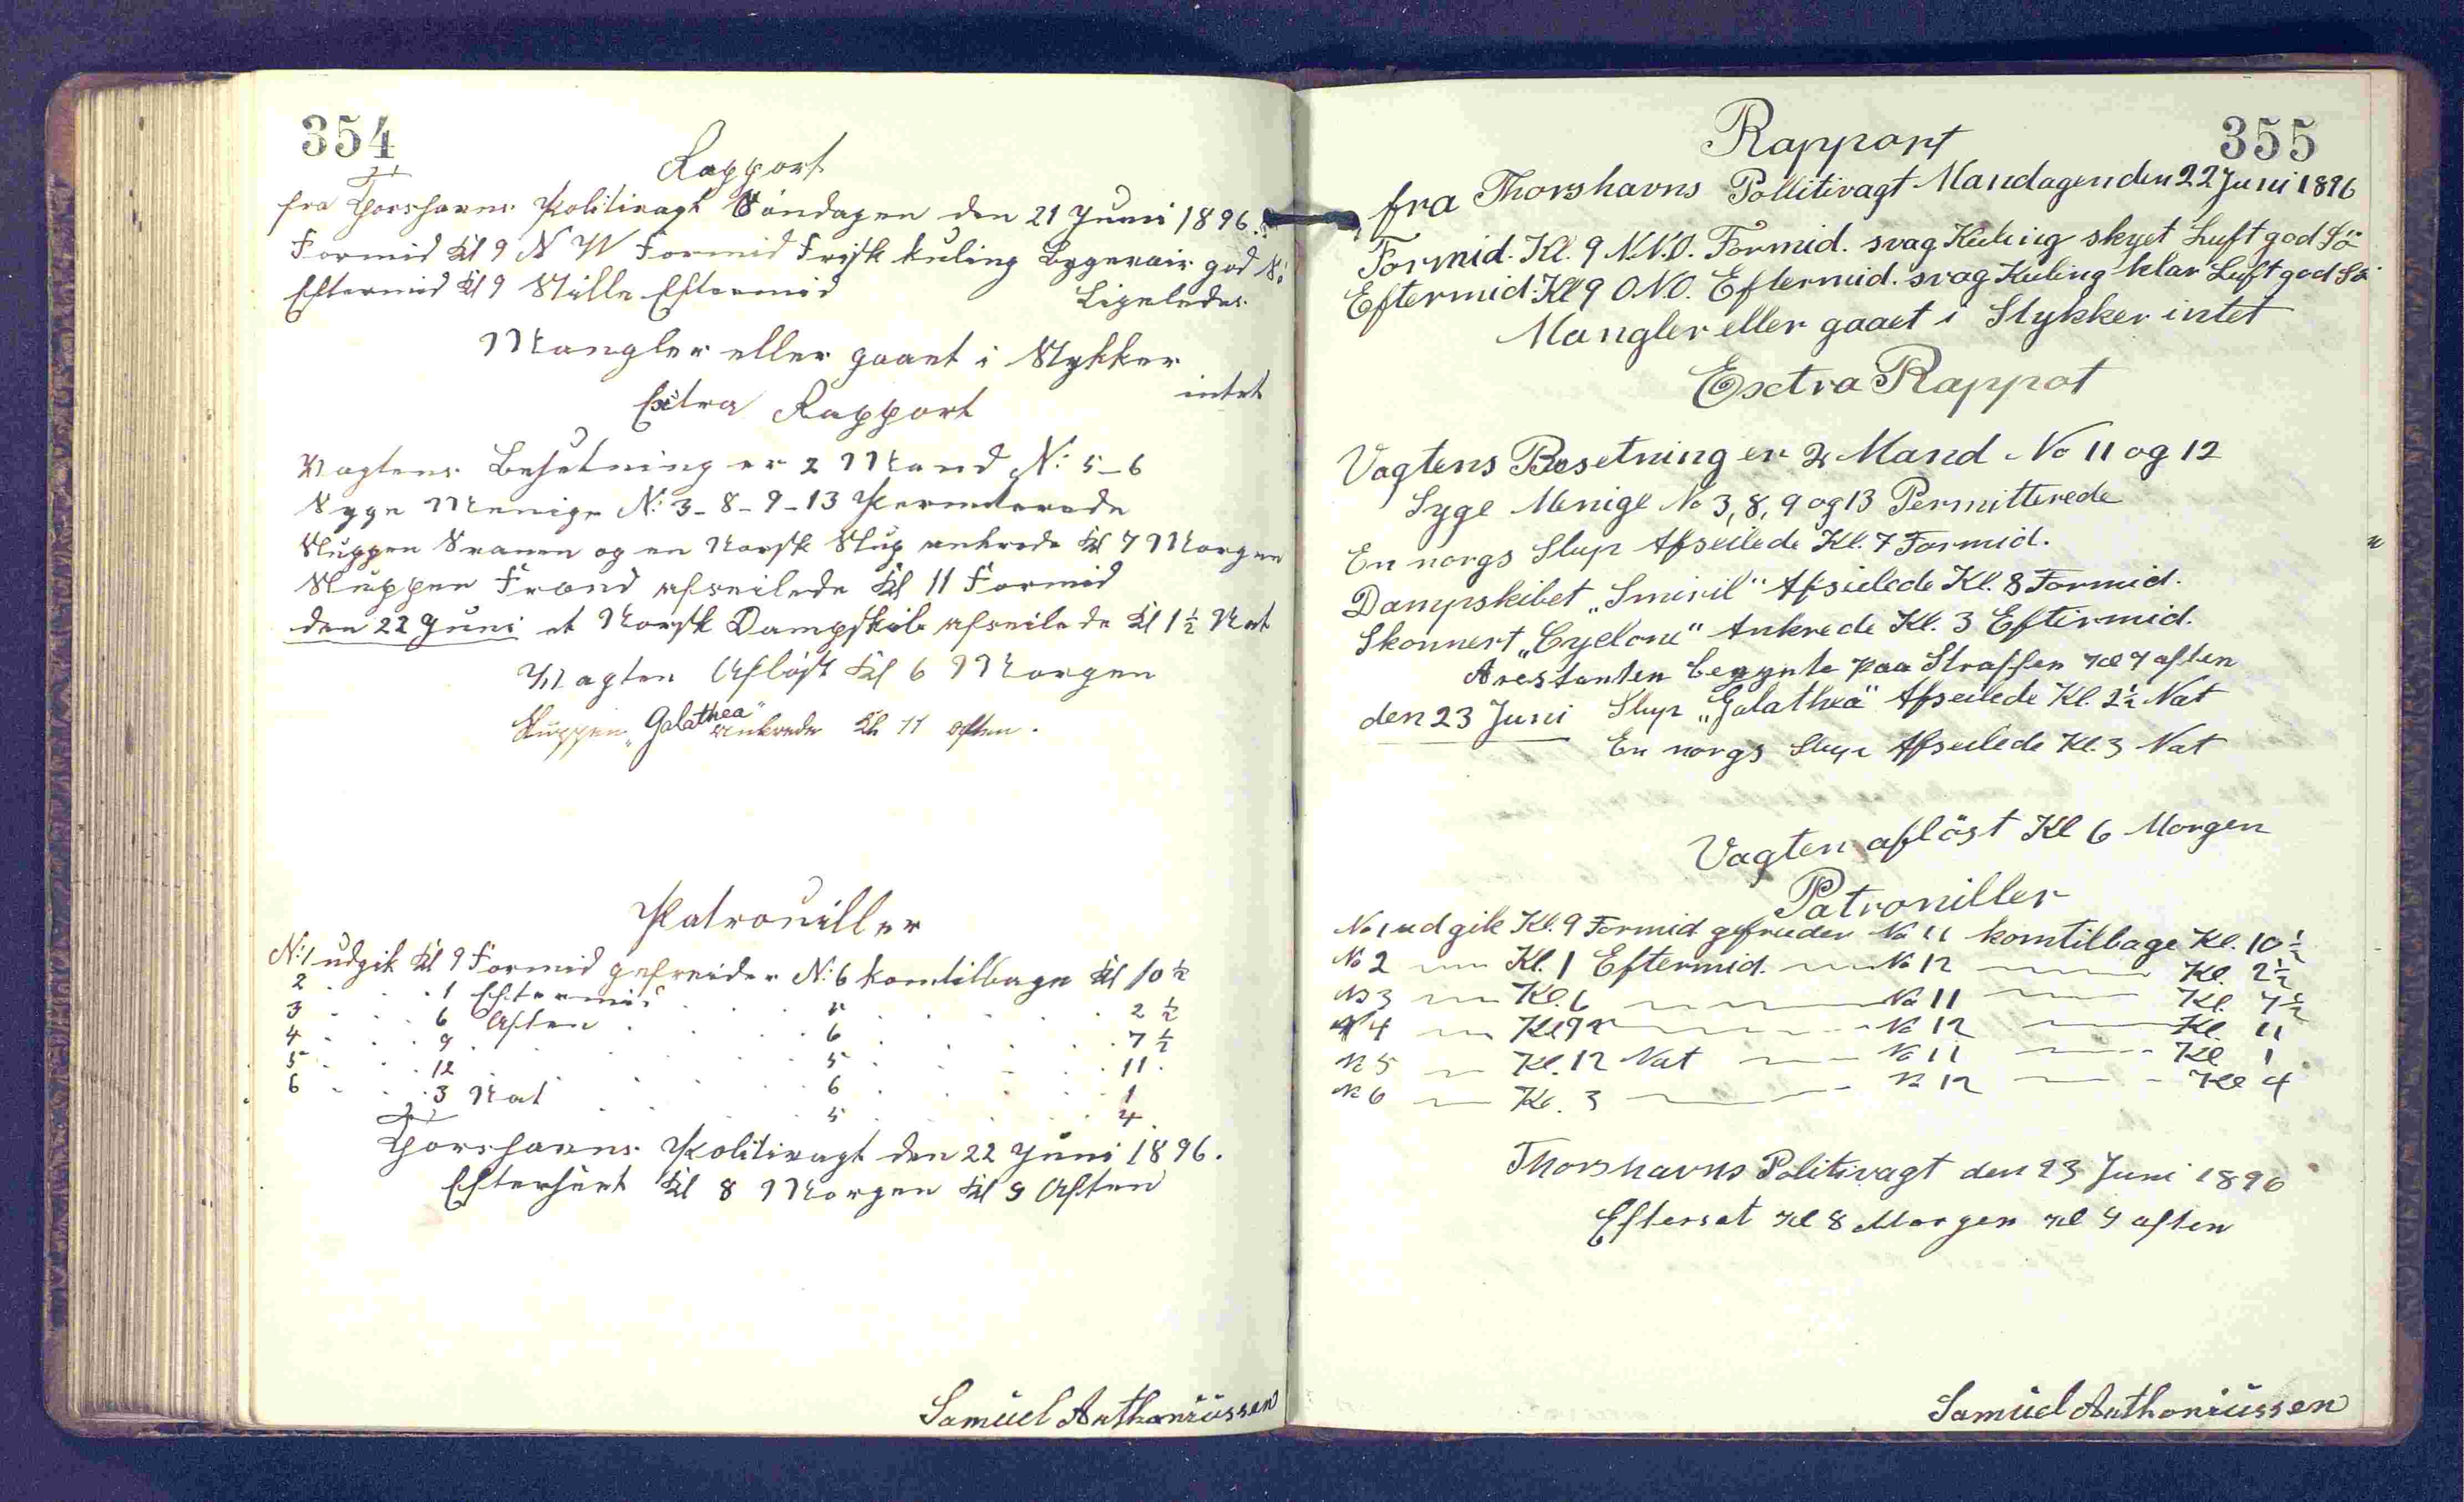 354
Rapport
fra Thorshavns Politivagt Söndagen den 21 Juni 1896.
Formid Kl 9 N W Formid Frisk kuling Bygevair god S:
Eftermid Kl 9 Stille Eftermid Ligeledes
Mangler eller gaaet i Stykker
intet
Extra Rapport
Vagtens Besetning er 2 Mand N: 5-6
Syge Menige N: 3-8-9-13 Permiterede
Sluppen Svanen og en Norsk Slup ankrede Kl 7 Morgen
Sluppen Frænd afseilede Kl 11 Formid
den 22 Juni et Norsk Dampskib afseilede Kl 1½ Nat
Vagten Aflöst Kl 6 Morgen
Sluppen „Galathea" ankrede Kl 11 aften.
Patrouiller
N:1 udgik Kl 9 Formid gefreider N:6 komtilbage Kl 10½
2 . . . 1 Eftermid . . . 5 . . . 2½
3 . . . 6 Aften . . . 6 . . . 7½
4 . . . 9 . . . 5 . . . 11.
5 . . . 12 . . . 6 . . . 1
6 . . . 3 Nat . . . 5 . . . 4.
Thorshavns Politivagt den 22 Juni 1896.
Efterseet Kl 8 Morgen Kl 9 Aften
Samuel Anthoniussen
355
Rapport
fra Thorshavns Pollitivagt Mandagen den 22 Juni 1896
Formid. Kl. 9 N.N.O. Formid. svag Kuling skyet Luft god Sö
Eftermid: Kl 9 O.N.O. Eftermid. svag Kuling klar Luft god Sö
Mangler eller gaaet i Stykker intet
Exctra Rappot
Vagtens Besetning er 2 Mand No 11 og 12
Syge Menige No 3, 8, 9 og 13 Permitterede
En norgs Slup Afseilede Kl. 7 Formid.
Dampskibet „Smiril" Afseilede Kl. 8 Formid.
Skonnert „Cyclone" Ankrede Kl. 3 Eftermid.
Arestanten begynte paa Straffen Kl 7 aften
den 23 Juni Slup „Galathea" Afseilede Kl. 2½ Nat
En norgs Slup Afseilede Kl. 3 Nat
Vagten aflöst Kl 6 Morgen
Patroniller
No 1 udgik Kl. 9 Formid gefreider No 11 komtilbage Kl. 10½
No 2 — Kl. 1 Eftermid. — No 12 — Kl. 2½
No 3 — Kl. 6 — No 11 — Kl. 7½
N 4 — Kl 9 — No 12 — Kl. 11
No 5 — Kl. 12 Nat — No 11 — Kl 1
No 6 — Kl. 3 — No 12 — Kl 4
Thorshavns Politivagt den 23 Juni 1896
Efterset Kl 8 Morgen Kl 9 aften
Samuel Anthoniussen